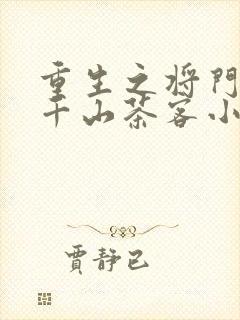 重生之将门
千山茶客小
賈靜已